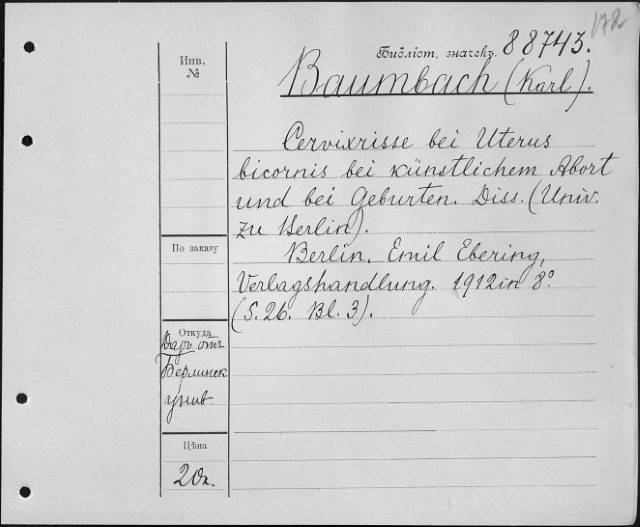 172
Библіот. значекъ 88743.
Baumbach (Karl).
Cervixrisse bei Uterus
bicornis bei künstlichem Abort
und bei Geburten. Diss. (Univ.
zu Berlin).
Berlin, Emil Ebering,
Verlagshandlung. 1912 in 8º
(S. 26. Bl. 3).
Инв.
№
По заказу
Откуда
Даръ отъ
Берлинск.
унив.
Цѣна
20к.